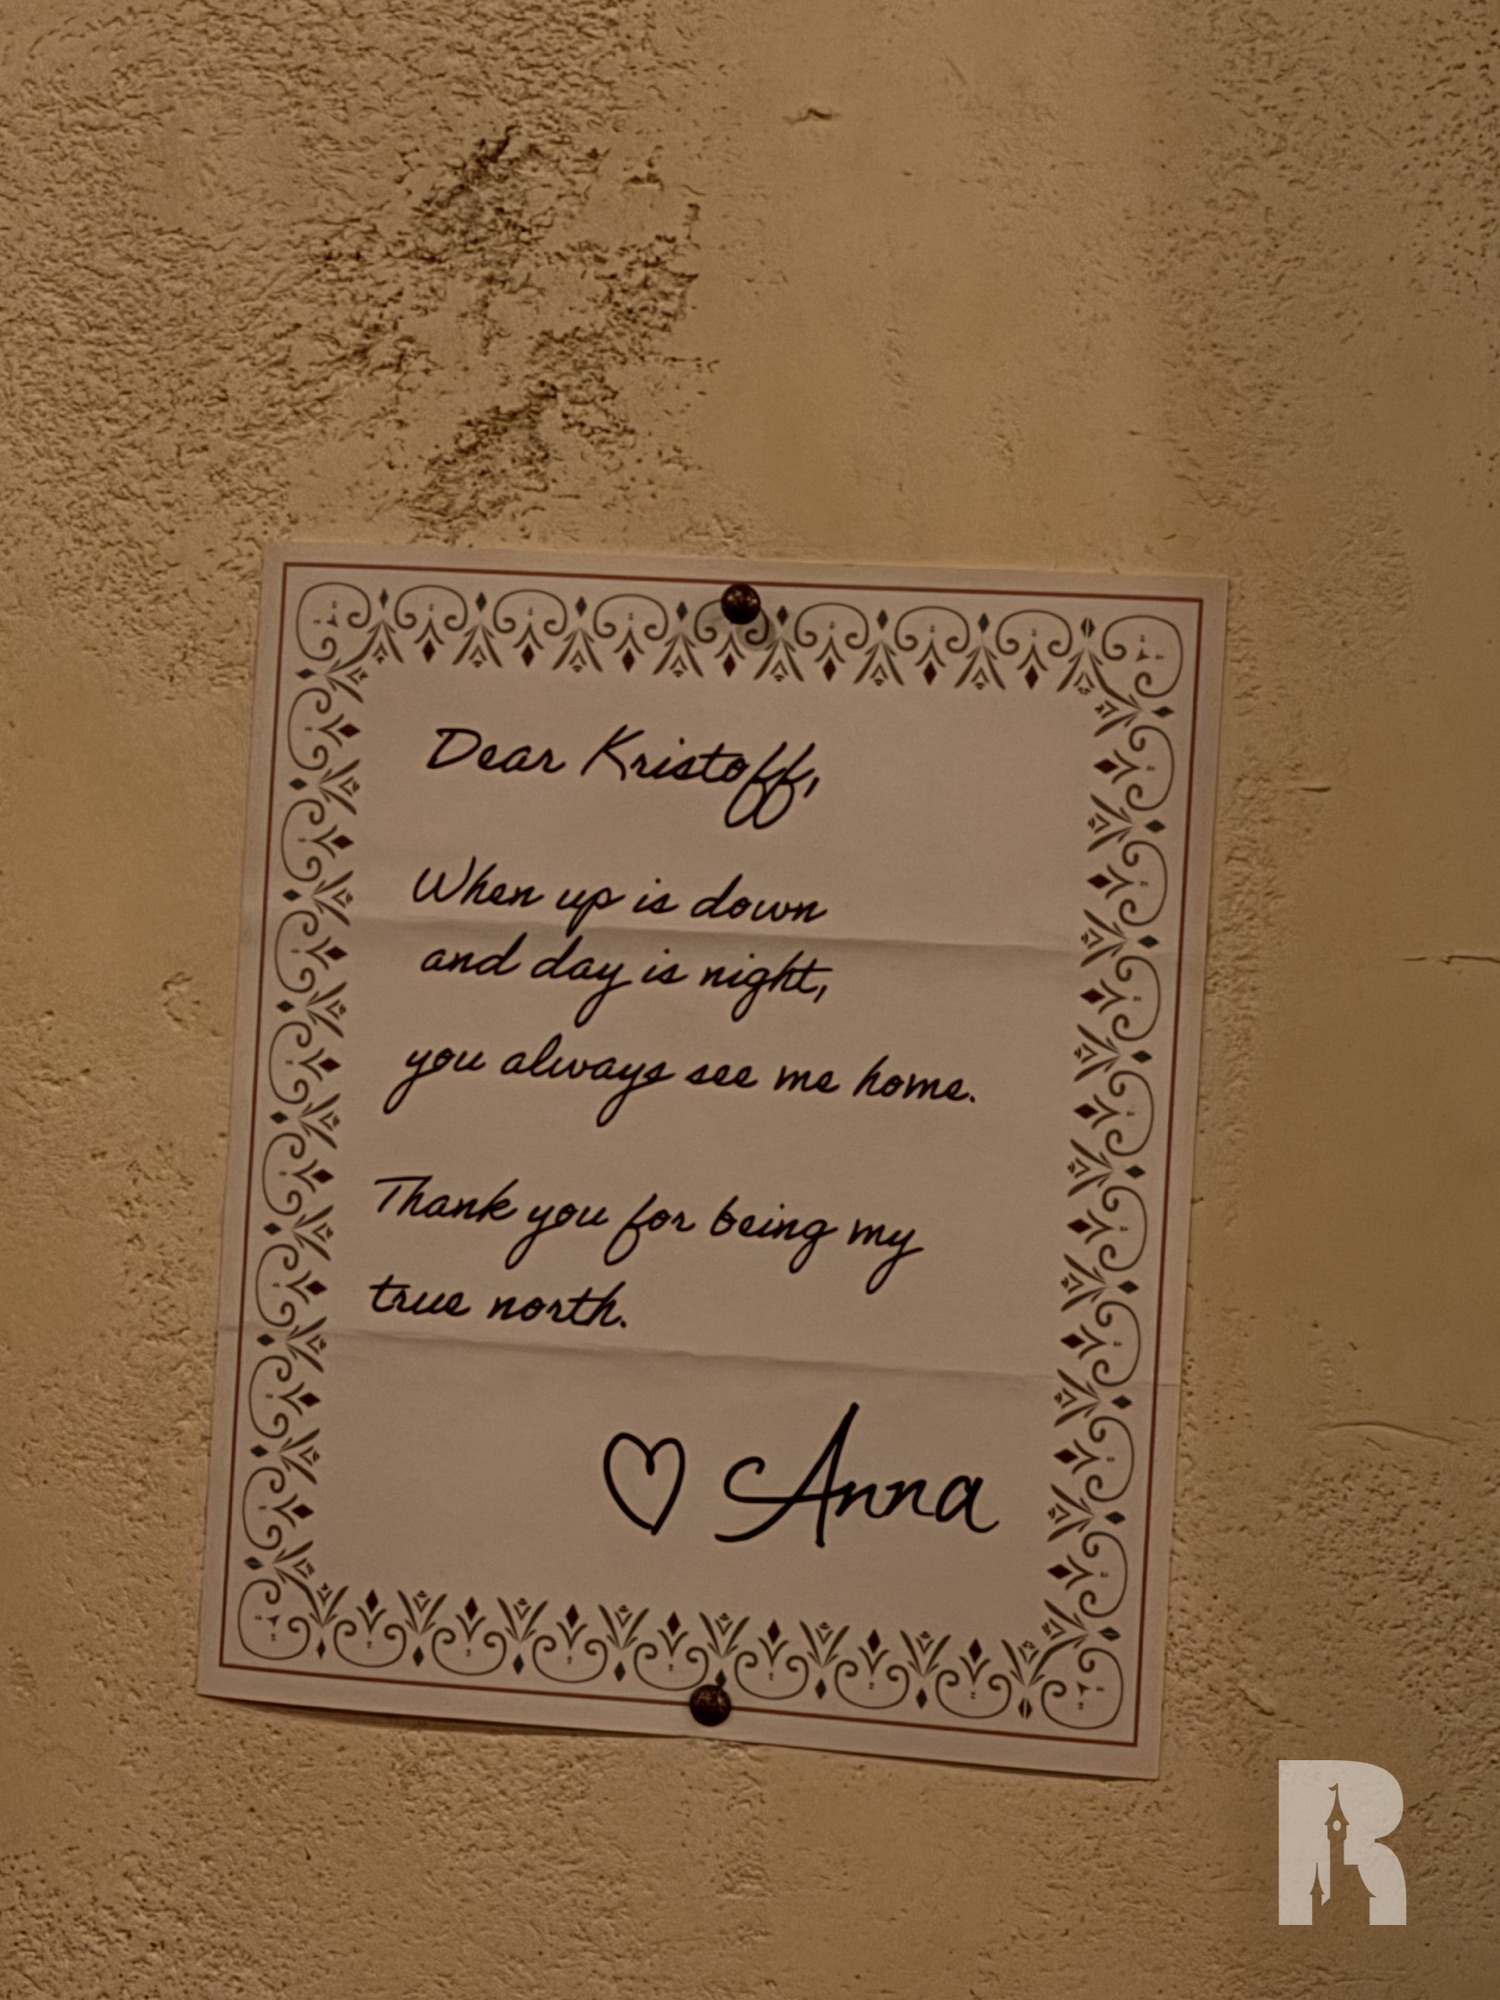 Dear Kristoff,
When up is down
and day is night,
you always see me home.
Thank you for being my
true north.
♡ Anna
R